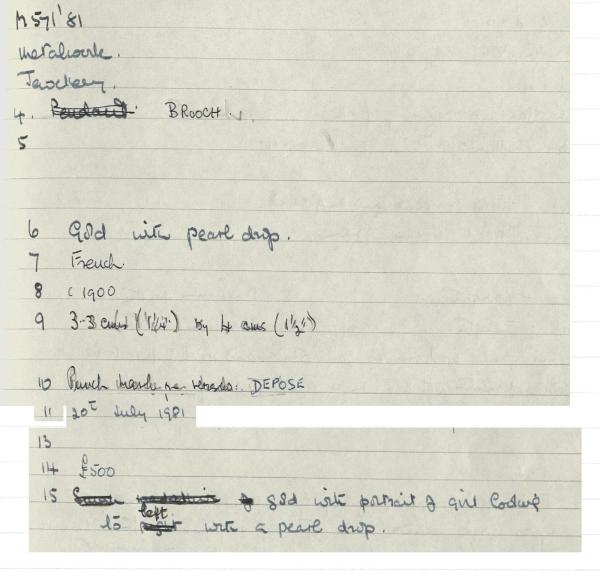 M571'81
Metalwork.
Jewellery.
4. Pendant. BROOCH.
5
6 Gold with pearl drop.
7 French.
8 c 1900
9 3-3 cms (1¼") by 4 cms (1½")
10 Punch marks on verso: DEPOSE
11 20th July 1981
13
14 £500
15 gold with portrait of girl looking
left
to right with a pearl drop.